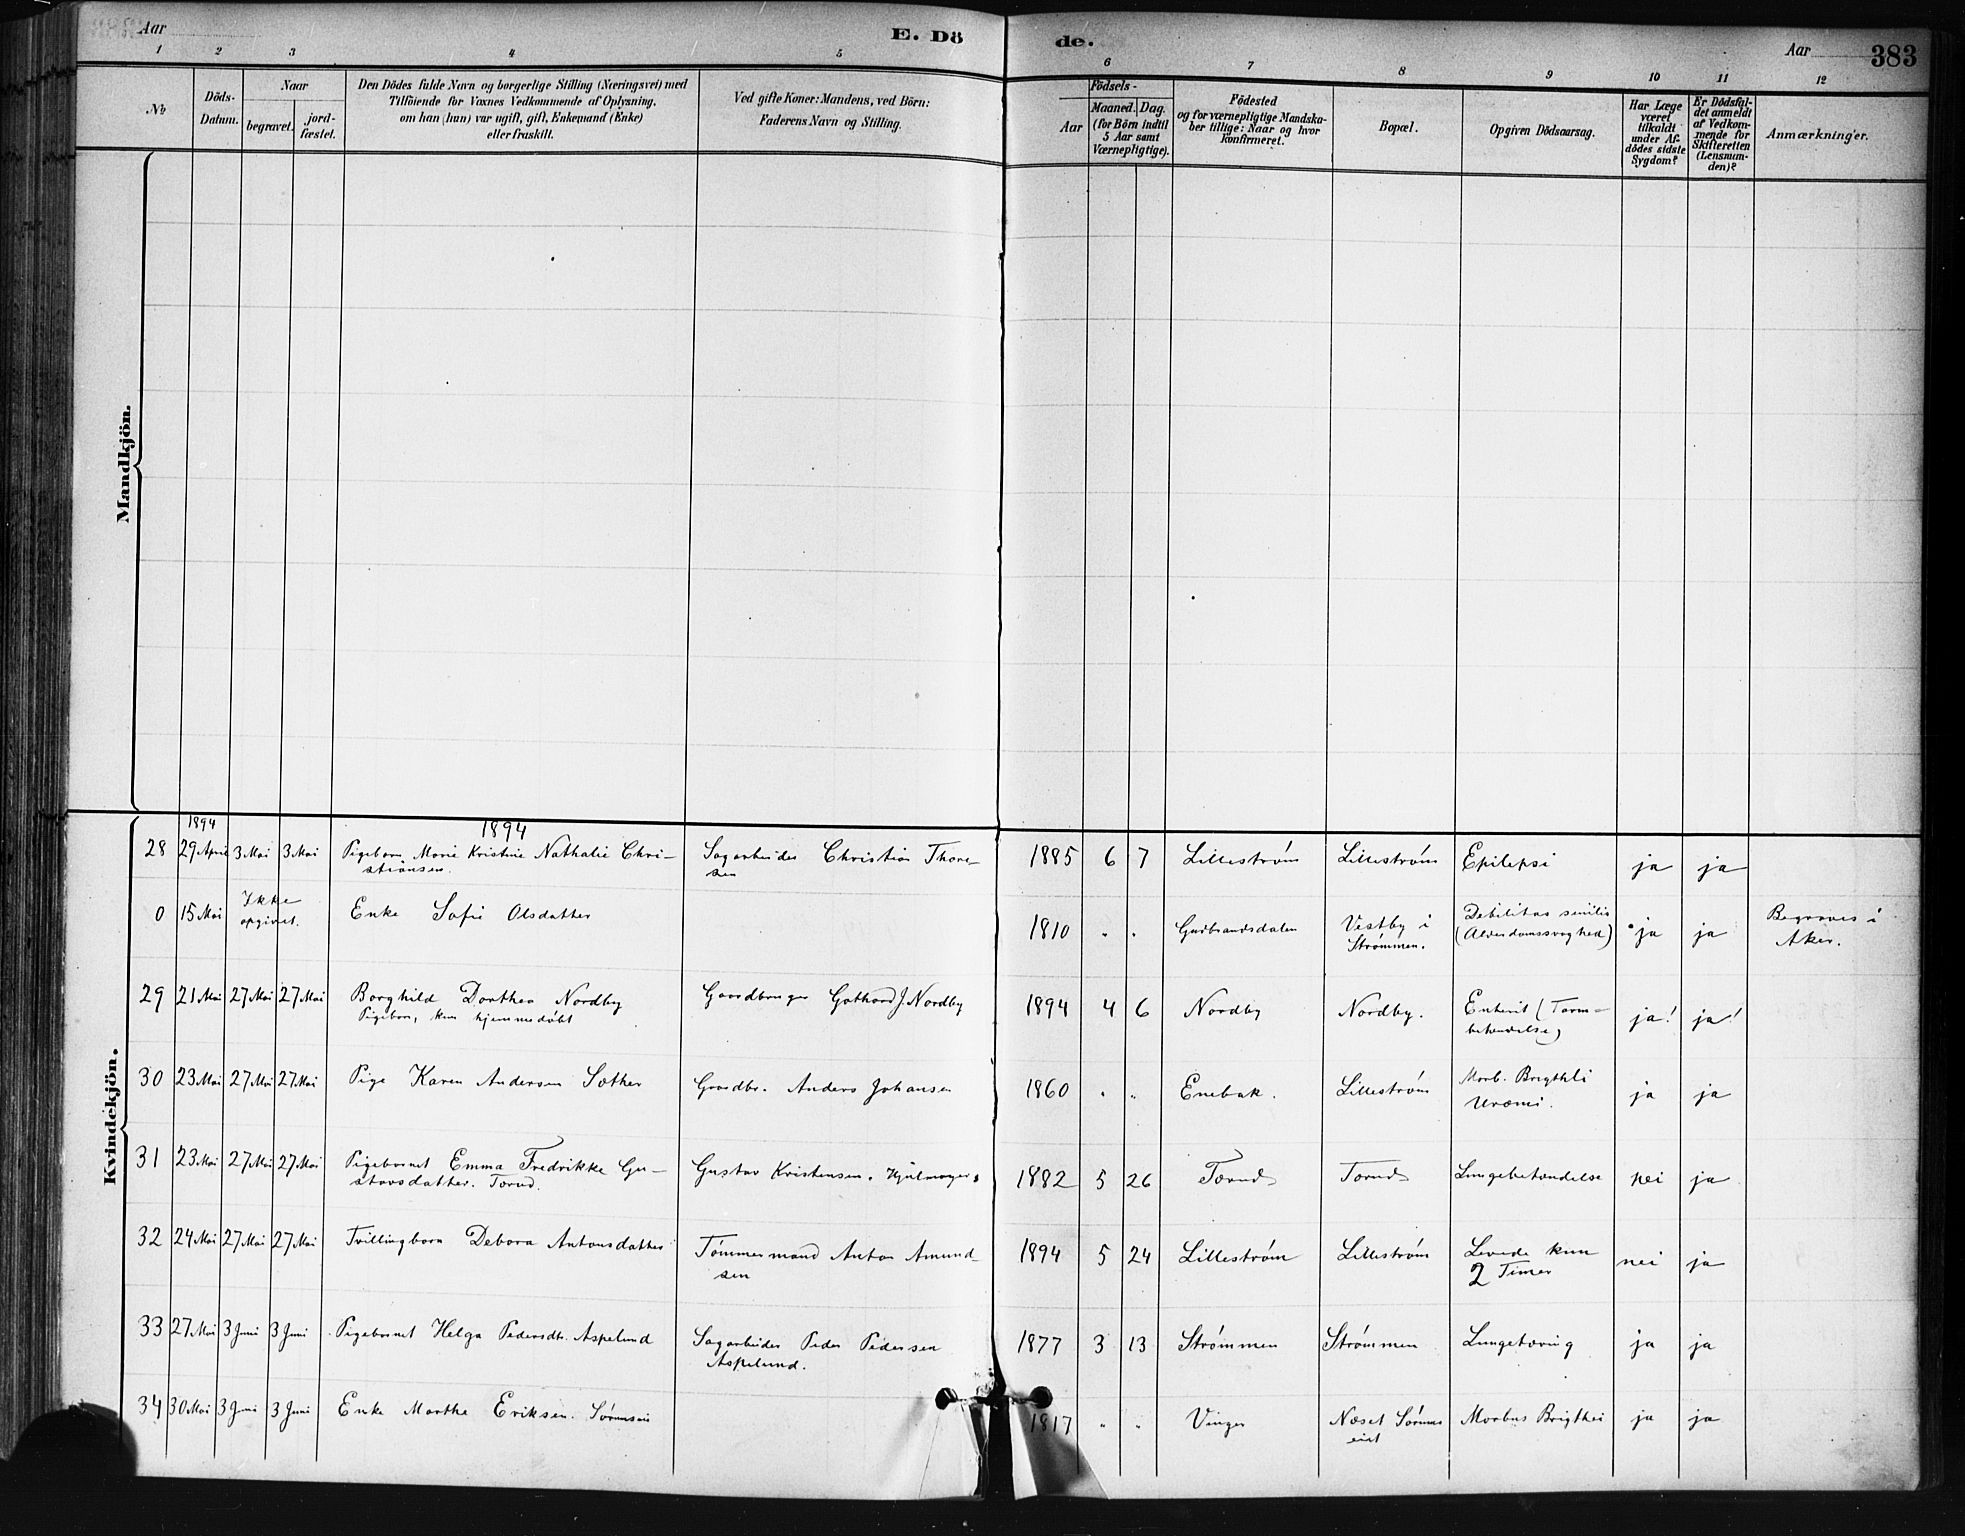 Aar
E. Dö
de.
Aar
383
1 2 3 4 5 6 7 8 9 10 11 12
No
Döds-
Datum.
Naar
begravet.
jord-
fæstet.
Den Dödes fulde Navn og borgerlige Stilling (Næringsvei) med
Tilföiende for Voxnes Vedkommende af Oplysning,
om han (hun) var ugift, gift, Enkemand (Enke)
eller fraskilt.
Ved gifte Koner: Mandens, ved Börn:
Faderens Navn og Stilling.
Födsels-
Aar
Maaned. Dag.
(for Börn indtil
5 Aar samt
Værnepligtige).
Födested
og for værnepligtige Mandska-
ber tillige: Naar og hvor
konfirmeret.
Bopæl.
Opgiven Dödsaarsag.
Har Læge
været
tilkaldt
under Af-
dödes sidste
Sygdom?
Er Dödsfal-
det anmeldt
af Vedkom-
mende for
Skifteretten
(Lensman-
den)?
Anmærkninger.
Mandkjön.
Kvindekjön.
1894
1894
28 29 April 3 Mai 3 Mai Pigebarn Marie Kristine Nathalie Chri-
stiansen.
Sagarbeider Christian Thore-
sen
1885 6 7 Lillestrøm Lillestrøm Epilepsi ja ja
0 15 Mai Ikke
opgivet.
Enke Sofie Olsdatter
1810 " " Gudbrandsdalen Vestby i
Strømmen.
Debilitas senilis
(Alderdomssvaghed)
ja ja Begraves i
Aker.
29 21 Mai 27 Mai 27 Mai Borghild Dorthea Nordby
Pigebarn, kun hjemmedøbt
Gaardbruger Gothard J Nordby
1894 4 6 Nordby Nordby. Enterit (Tarm-
betændelse)
ja! ja!
30 23 Mai 27 Mai 27 Mai Pige Karen Andersen Sæther
Gaardbr. Anders Johansen
1860 " " Enebak. Lillestrøm Morb. Brigthli
Uræmi.
ja ja
31 23 Mai 27 Mai 27 Mai Pigebarnet Emma Fredrikke Gu-
stavsdatter. Tærud.
Gustav Kristensen. Hjulmager.
1882 5 26 Tærud Tærud Lungebetændelse nei ja
32 24 Mai 27 Mai 27 Mai Tvillingbarn Debora Antonsdatter
Tømmermand Anton Amund-
sen
1894 5 24 Lillestrøm Lillestrøm Levede kun
2 Timer
nei ja
33 27 Mai 3 Juni 3 Juni Pigebarnet Helga Pedersdtr. Aspelund
Sagarbeider Peder Pedersen
Aspelund.
1877 3 13 Strømmen Strømmen Lungetæring ja ja
34 30 Mai 3 Juni 3 Juni Enke Marthe Eriksen.
1817 " " Vinger Næset Sørums
eiet
Morbus Brigthii ja ja